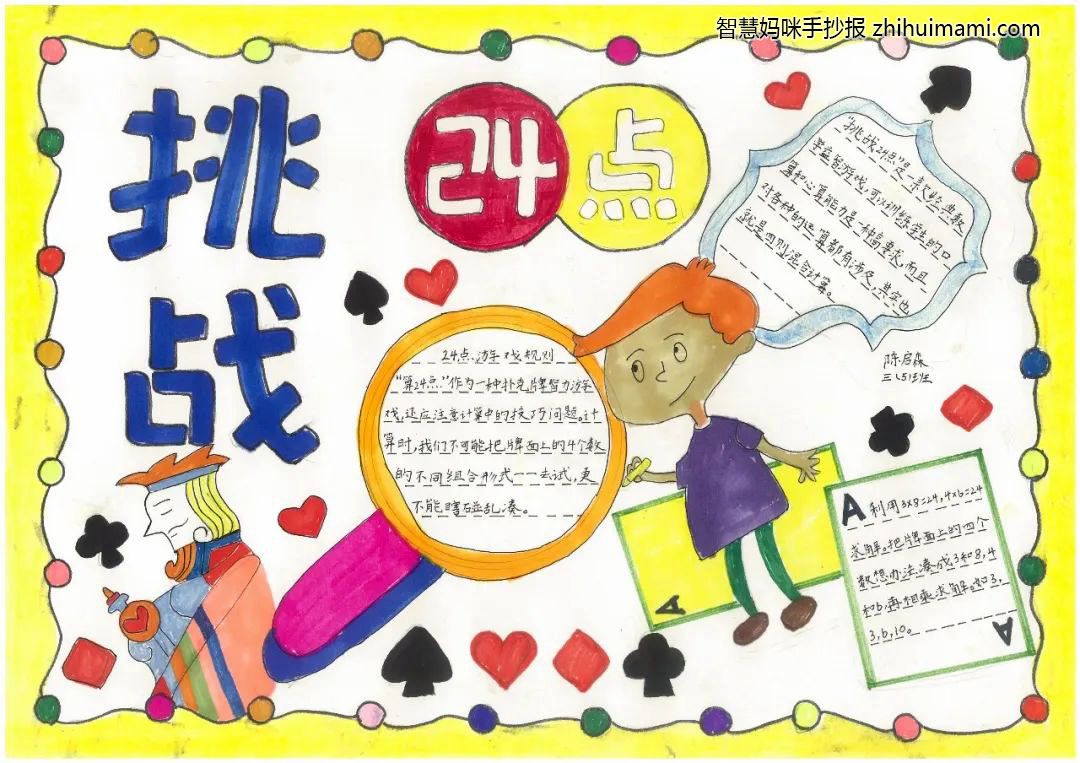 智慧妈咪手抄报 zhihuimami.com
挑战
24点
"挑战24点"是一款经典数
学益智游戏,可以训练学生的口
算和心算能力是一种高要求,而且
对各种的运算都有涉及,其实也
就是四则混合计算。
陈启森
三(5)班
24点游戏规则
"算24点"作为一种扑克牌智力游
戏,还应注意计算中的技巧问题。计
算时,我们不可能把牌面上的4个数
的不同组合形式一一去试,更
不能瞎碰乱凑。
A
A 利用3x8=24,4x6=24
求解。把牌面上的四个
数想办法凑成3和8,4
和6,再相乘求解。如3,
3,6,10。
A